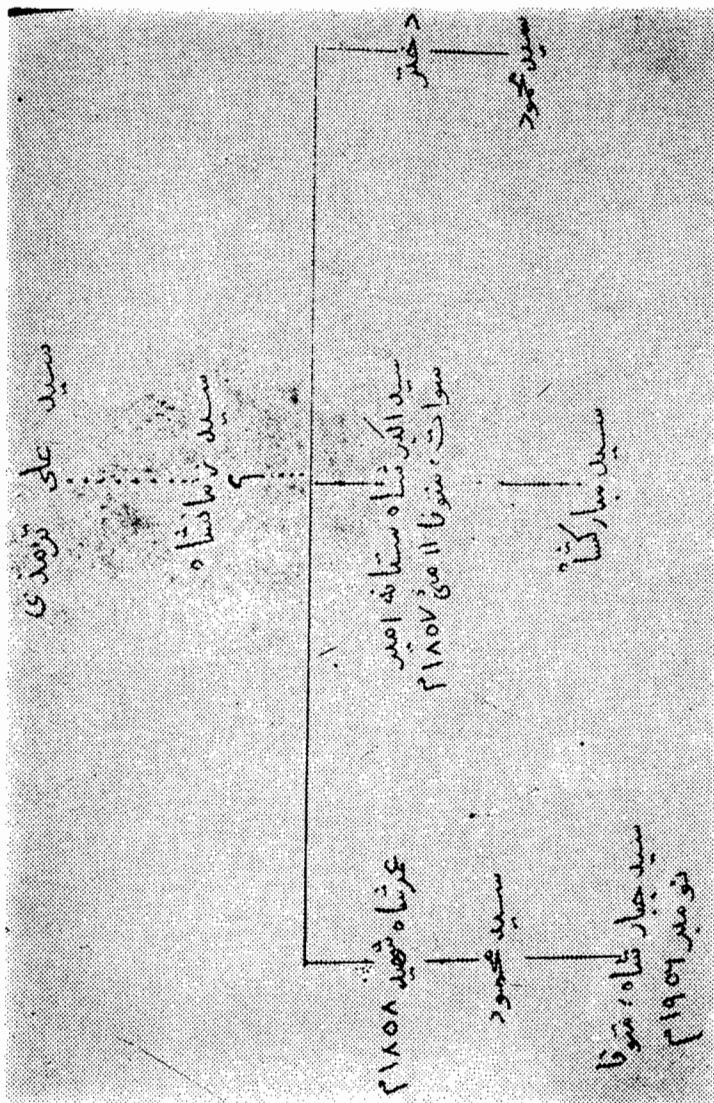 سید علی ترمذی
سید زمانشاہ
؟
دختر
سید محمود
سید اکبر شاہ ستانہ امیر
سوات، متوفا ۱۱ مئی ۱۸۵۷م
سید مبارکشاہ
عمر شاہ شهید ۱۸۵۸م
سید محمود
سید جبار شاہ، متوفا
نومبر ۱۹۵۶م